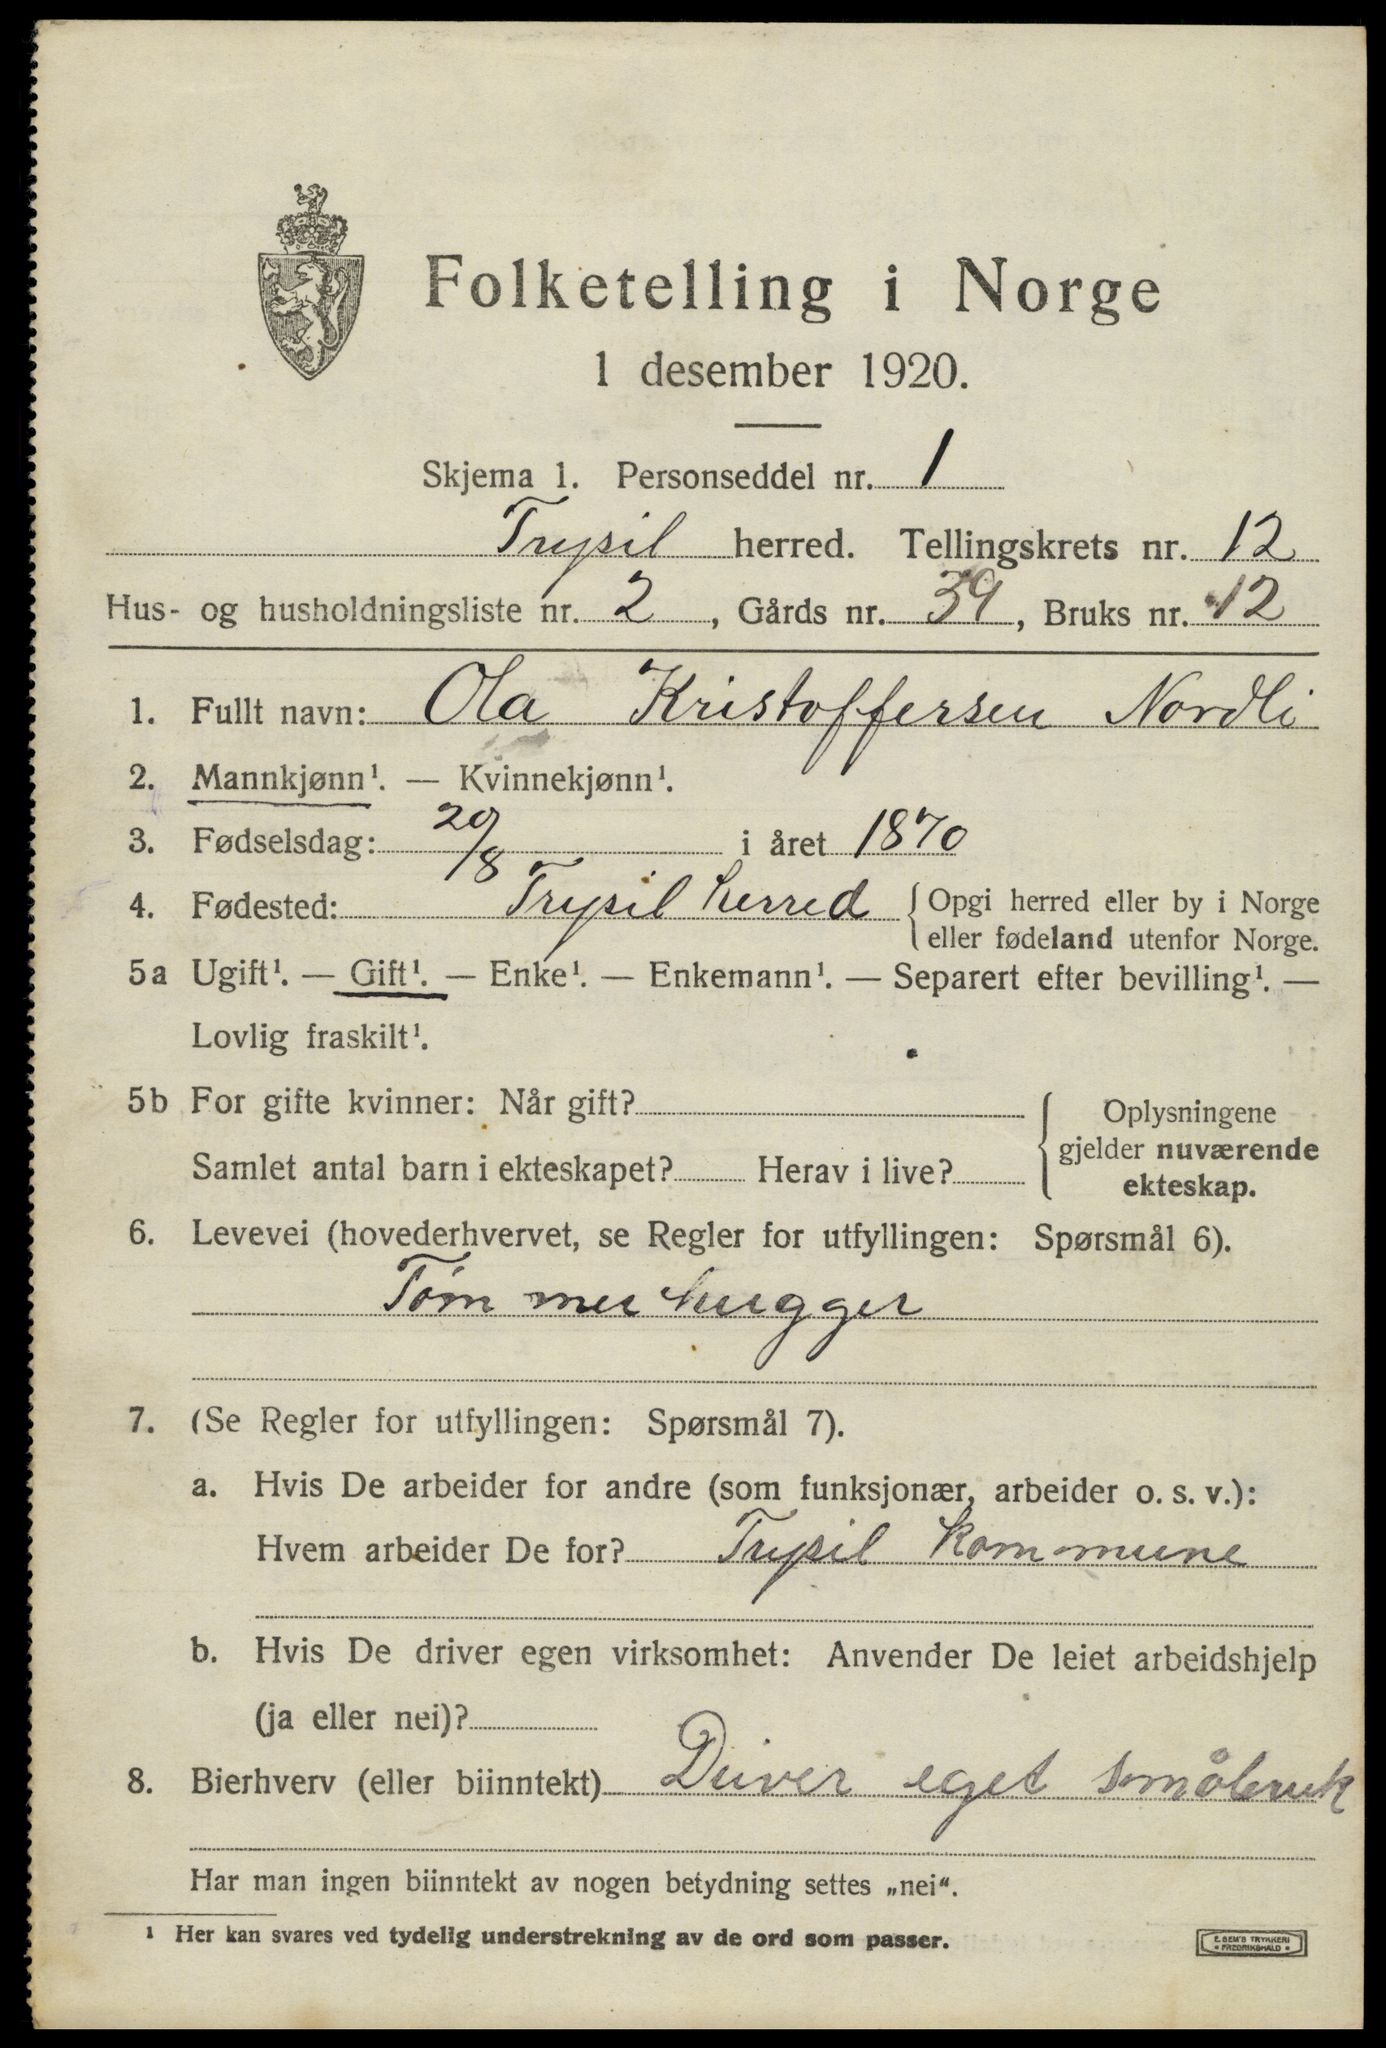 Folketelling i Norge
1 desember 1920.
Skjema 1. Personseddel nr. 1
Trysil herred. Tellingskrets nr. 12
Hus- og husholdningsliste nr. 2, Gårds nr. 39, Bruks nr. 12
1. Fullt navn: Ola Kristoffersen Nordli
2. Mannkjønn¹. — Kvinnekjønn¹.
3. Fødselsdag: 20/8 i året 1870
4. Fødested: Trysil herred { Opgi herred eller by i Norge
eller fødeland utenfor Norge.
5a Ugift¹. — Gift¹. — Enke¹. — Enkemann¹. — Separert efter bevilling¹. —
Lovlig fraskilt¹.
5b For gifte kvinner: Når gift?
Samlet antal barn i ekteskapet? Herav i live?
Oplysningene
gjelder nuværende
ekteskap.
6. Levevei (hovederhvervet, se Regler for utfyllingen: Spørsmål 6).
Tømmerhugger
7. (Se Regler for utfyllingen: Spørsmål 7).
a. Hvis De arbeider for andre (som funksjonær, arbeider o. s. v.):
Hvem arbeider De for? Trysil kommune
b. Hvis De driver egen virksomhet: Anvender De leiet arbeidshjelp
(ja eller nei)?
8. Bierhverv (eller biinntekt) Driver eget småbruk
Har man ingen biinntekt av nogen betydning settes „nei“.
¹ Her kan svares ved tydelig understrekning av de ord som passer.
E. SEM'S TRYKKERI
• FREDRIKSHALD •